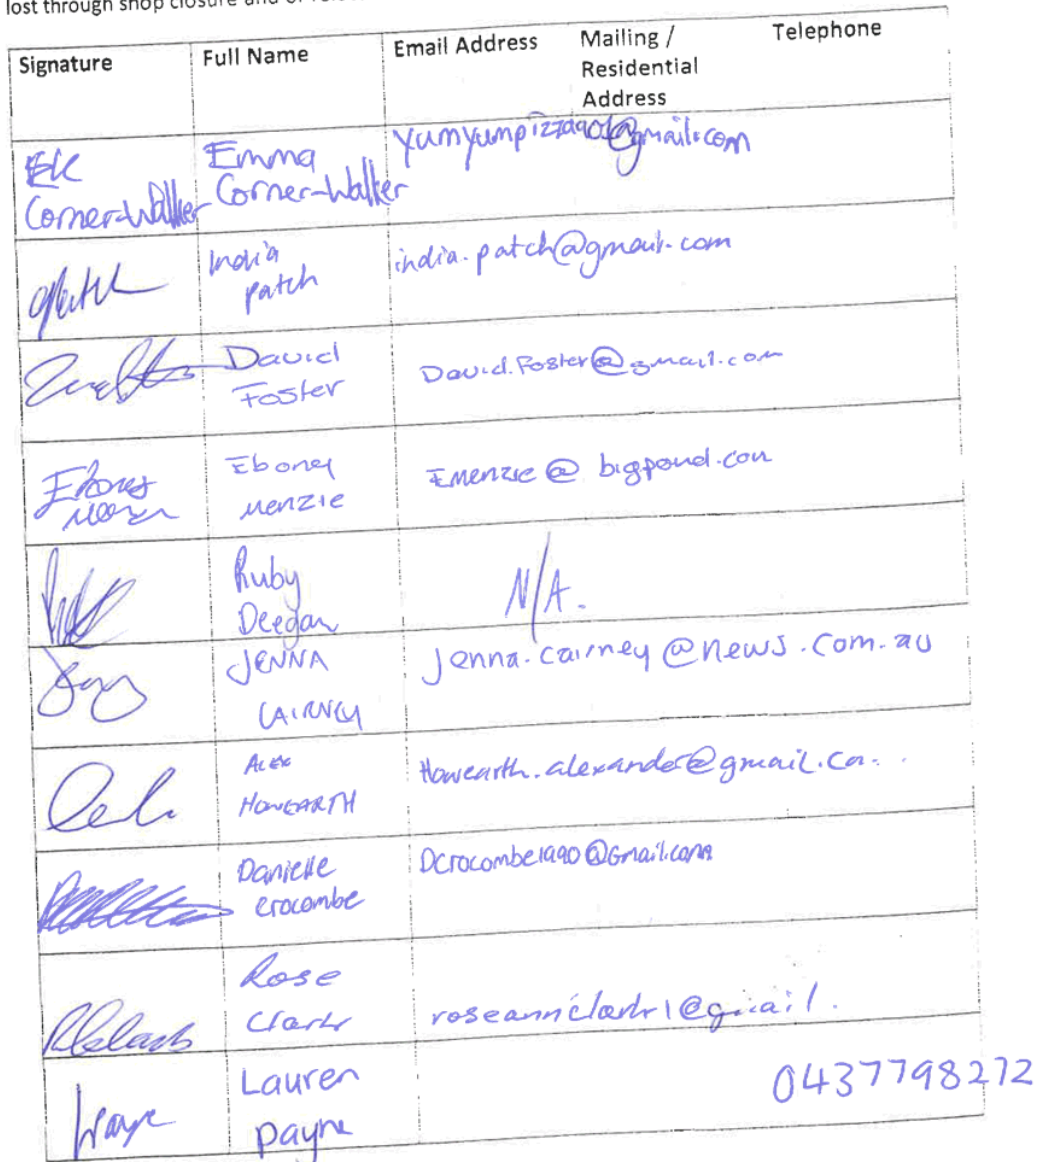 lost through shop closure and or
Signature Full Name Email Address Mailing / Residential Address Telephone
EK Corner-Walker Emma Corner-Walker yumyumpizza901@gmail.com
India patch india.patch@gmail.com
David Foster David.Foster@gmail.com
Ebony Menzie Eboney Menzie Emenzie@bigpond.com
Ruby Deegan N/A.
JENNA CAIRNEY Jenna.cairney@news.com.au
ALEX HOWEARTH Howearth.alexander@gmail.co..
Danielle crocombe Dcrocombe1990@Gmail.com
Rose Clark roseannclark1@gmail.
Lauren payne 0437798272